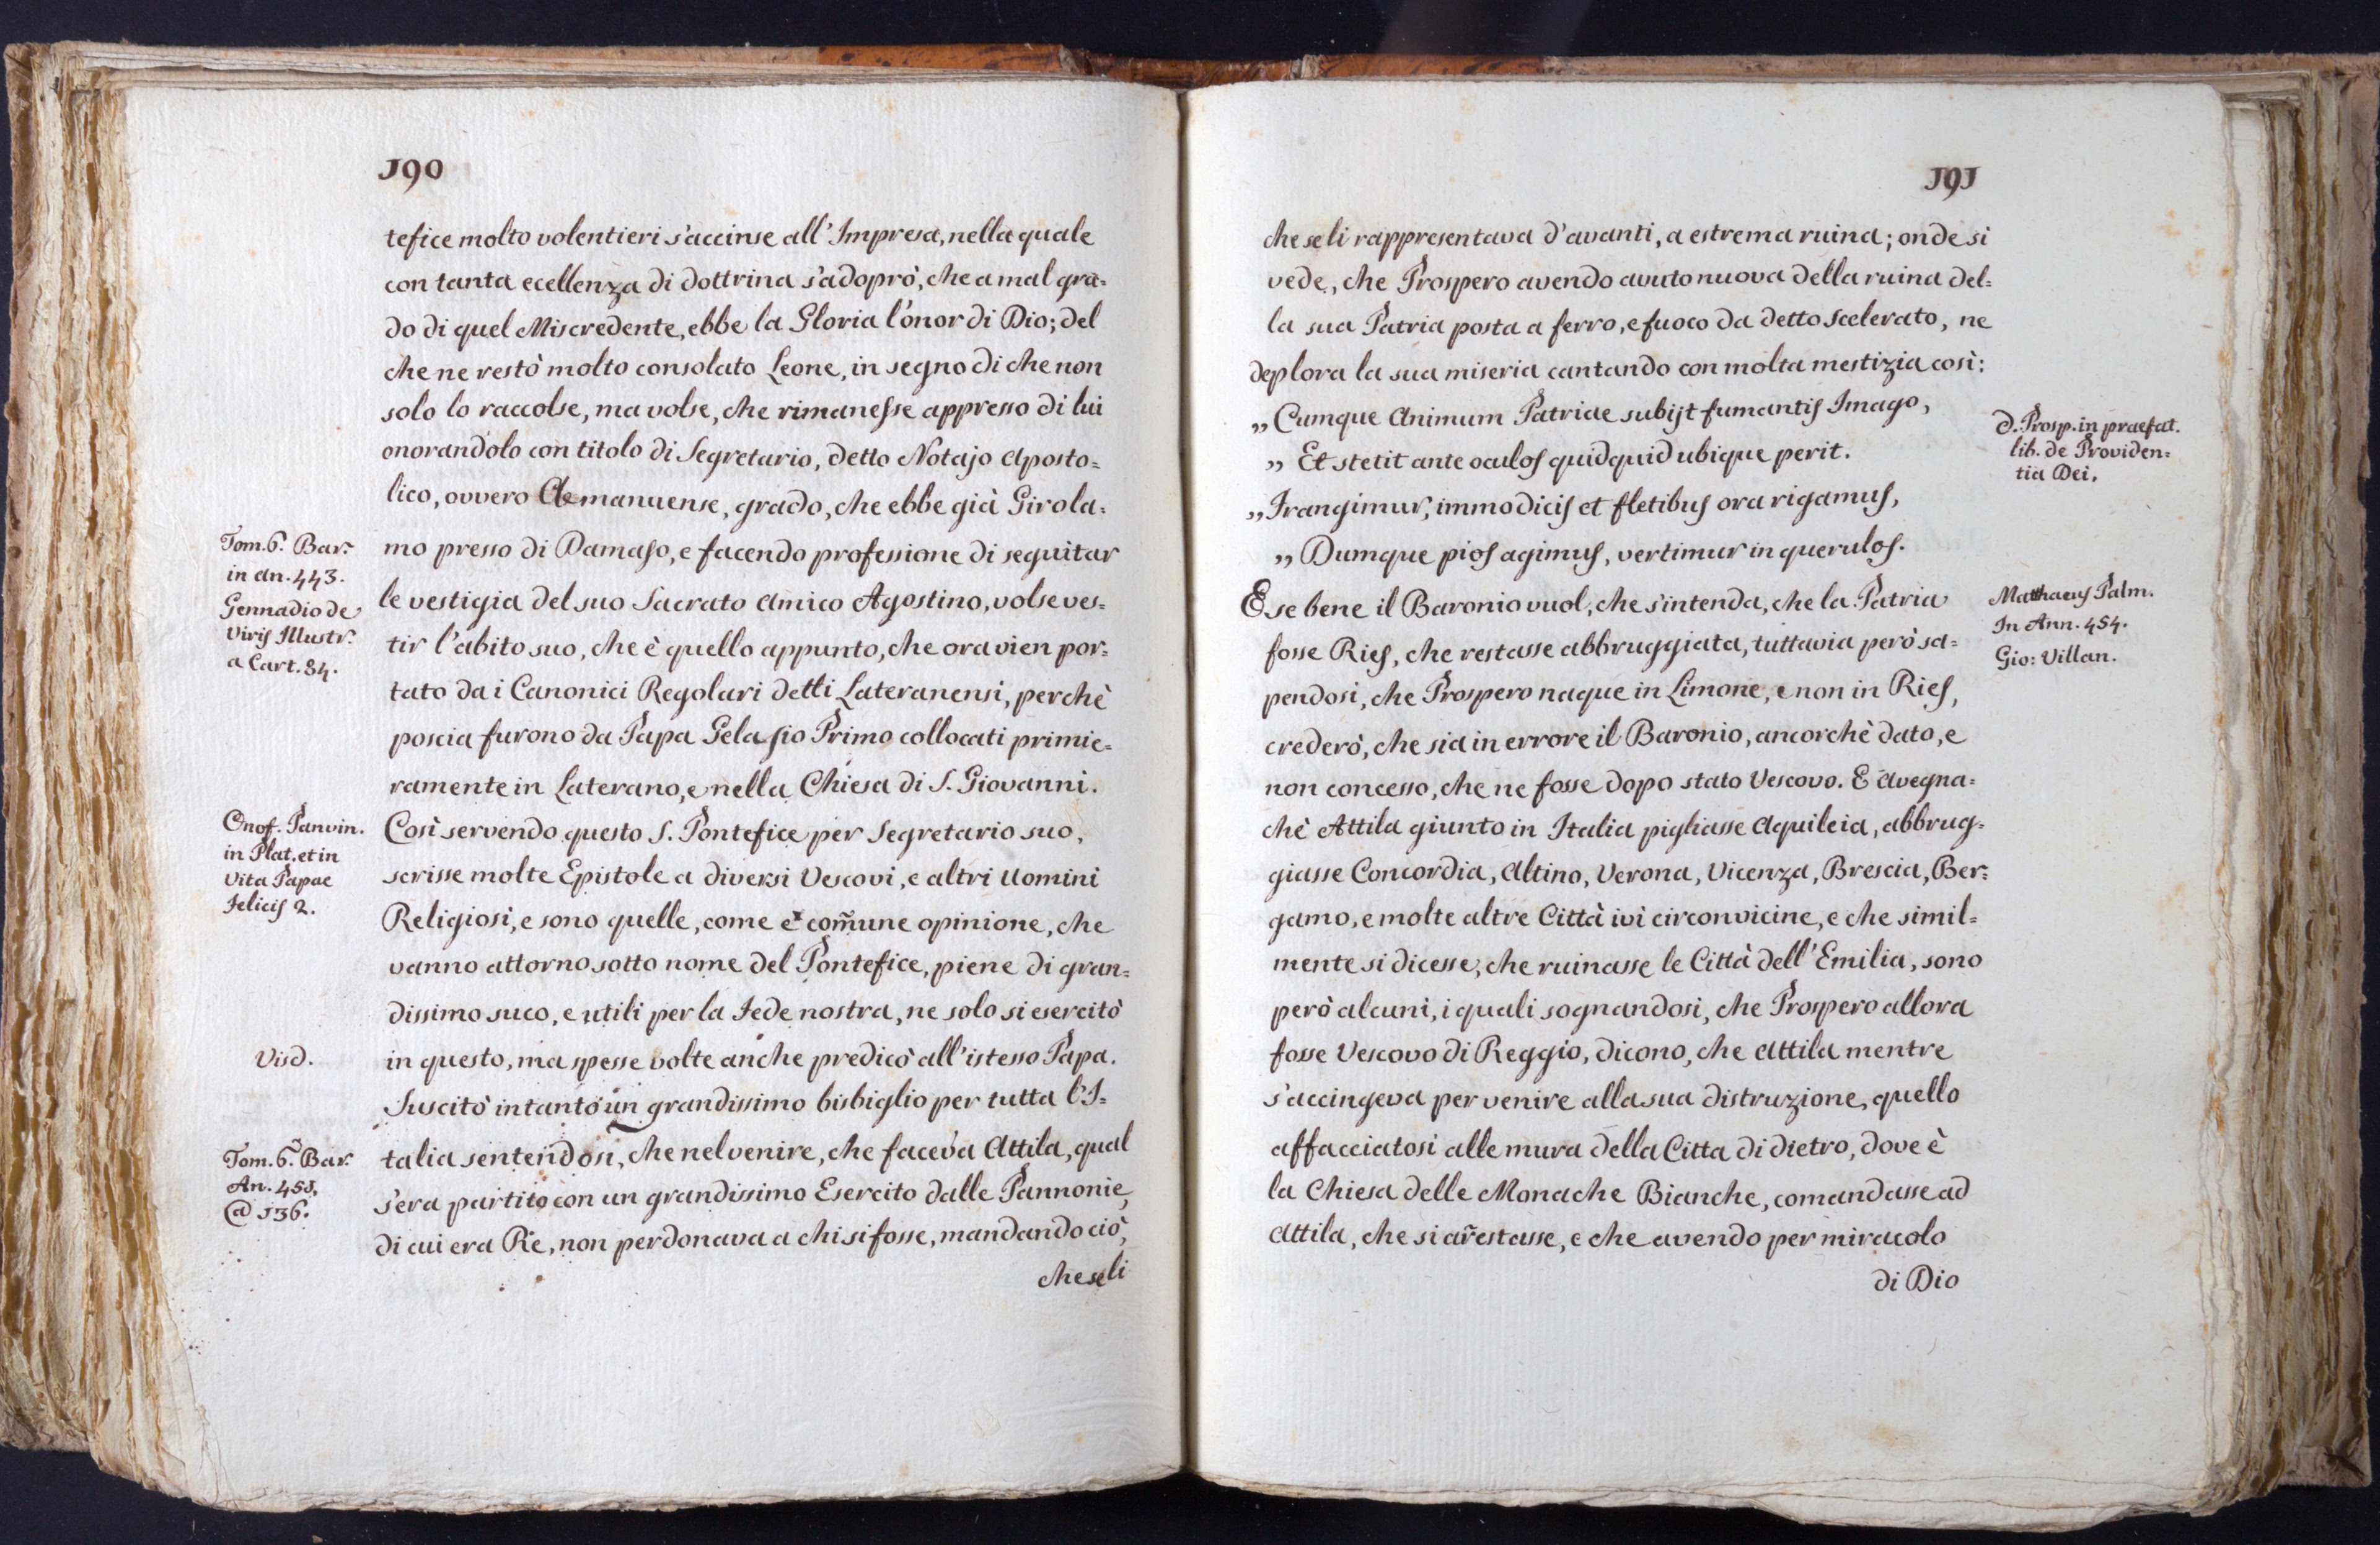 190
tefice molto volentieri s'accinse all'Impresa, nella quale
con tanta ecellenza di dottrina s'adoprò, che a mal gra=
do di quel Miscredente, ebbe la Gloria l'onor di Dio; del
che ne restò molto consolato Leone, in segno di che non
solo lo raccolse, ma volse, che rimanesse appresso di lui
onorandolo con titolo di Segretario, detto Notajo Aposto=
lico, ovvero Amanuense, grado, che ebbe già Girola=
Tom. 6. Bar.
in An. 443.
Gennadio de
Viris Illustr.
a Cart. 84.
mo presso di Damaso, e facendo professione di seguitar
le vestigia del suo Sacrato Amico Agostino, volse ves=
tir l'abito suo, che è quello appunto, che ora vien por=
tato da i Canonici Regolari detti Lateranensi, perchè
poscia furono da Papa Gelasio Primo collocati primie=
ramente in Laterano, e nella Chiesa di S. Giovanni.
Onof. Panvin.
in Plat. et in
Vita Papae
Felicis 2.
Così servendo questo S. Pontefice per Segretario suo,
scrisse molte Epistole a diversi Vescovi, e altri Uomini
Religiosi, e sono quelle, come è com̃une opinione, che
vanno attorno sotto nome del Pontefice, piene di gran=
dissimo suco, e utili per la Fede nostra, ne solo si esercitò
Visd.
in questo, ma spesse volte anche predicò all'istesso Papa.
Suscitò intanto un grandissimo bisbiglio per tutta l'I=
Tom. 6. Bar.
An. 451,
@ 136.
talia sentendosi, che nel venire, che faceva Attila, qual
s'era partito con un grandissimo Esercito dalle Pannonie,
di cui era Re, non perdonava a chi si fosse, mandando ciò,
che se li
191
che se li rappresentava d'avanti, a estrema ruina; onde si
vede, che Prospero avendo avuto nuova della ruina del=
la sua Patria posta a ferro, e fuoco da detto Scelerato, ne
deplora la sua miseria cantando con molta mestizia così:
„ Cumque Animum Patriae subijt fumantis Imago,
„ Et stetit ante oculos quidquid ubique perit.
„ Frangimur, immodicis et fletibus ora rigamus,
„ Dumque pios agimus, vertimur in querulos.
D. Prosp. in praefat.
lib. de Providen=
tia Dei.
E se bene il Baronio vuol, che s'intenda, che la Patria
fosse Ries, che restasse abbruggiata, tuttavia però sa=
pendosi, che Prospero naque in Limone, e non in Ries,
crederò, che sia in errore il Baronio, ancorchè dato, e
non concesso, che ne fosse dopo stato Vescovo. E Avegna=
chè Attila giunto in Italia pigliasse Aquileia, abbrug=
giasse Concordia, Altino, Verona, Vicenza, Brescia, Ber=
gamo, e molte altre Città ivi circonvicine, e che simil=
mente si dicesse, che ruinasse le Città dell'Emilia, sono
però alcuni, i quali sognandosi, che Prospero allora
fosse Vescovo di Reggio, dicono, che Attila mentre
s'accingeva per venire alla sua distruzione, quello
affacciatosi alle mura della Citta di dietro, dove è
la Chiesa delle Monache Bianche, comandasse ad
Attila, che si ar̃estasse, e che avendo per miracolo
di Dio
Matthaeus Palm.
In Ann. 454.
Gio: Villan.